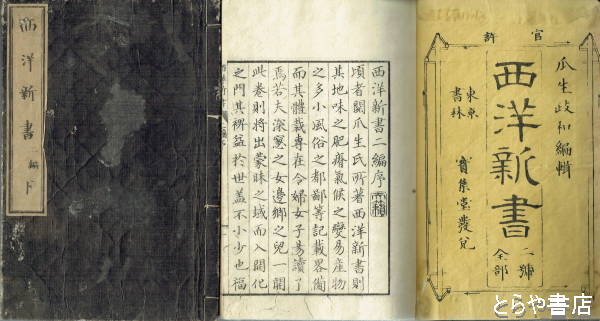 西洋新書 二編 下
官許
瓜生政和編輯
西洋新書
二號
全部
東京
書林
寳集堂發兌
西洋新書二編序
頃者閲瓜生氏所著西洋新書則
其地味之肥瘠氣候之變易産物
之多小風俗之都鄙等記載畧備
而其體裁專在令婦女子易讀了
焉若夫深窓之女邊郷之兒一閲
此巻則将出蒙昧之域而入開化
之門其裨益於世蓋不小少也福
とらや書店